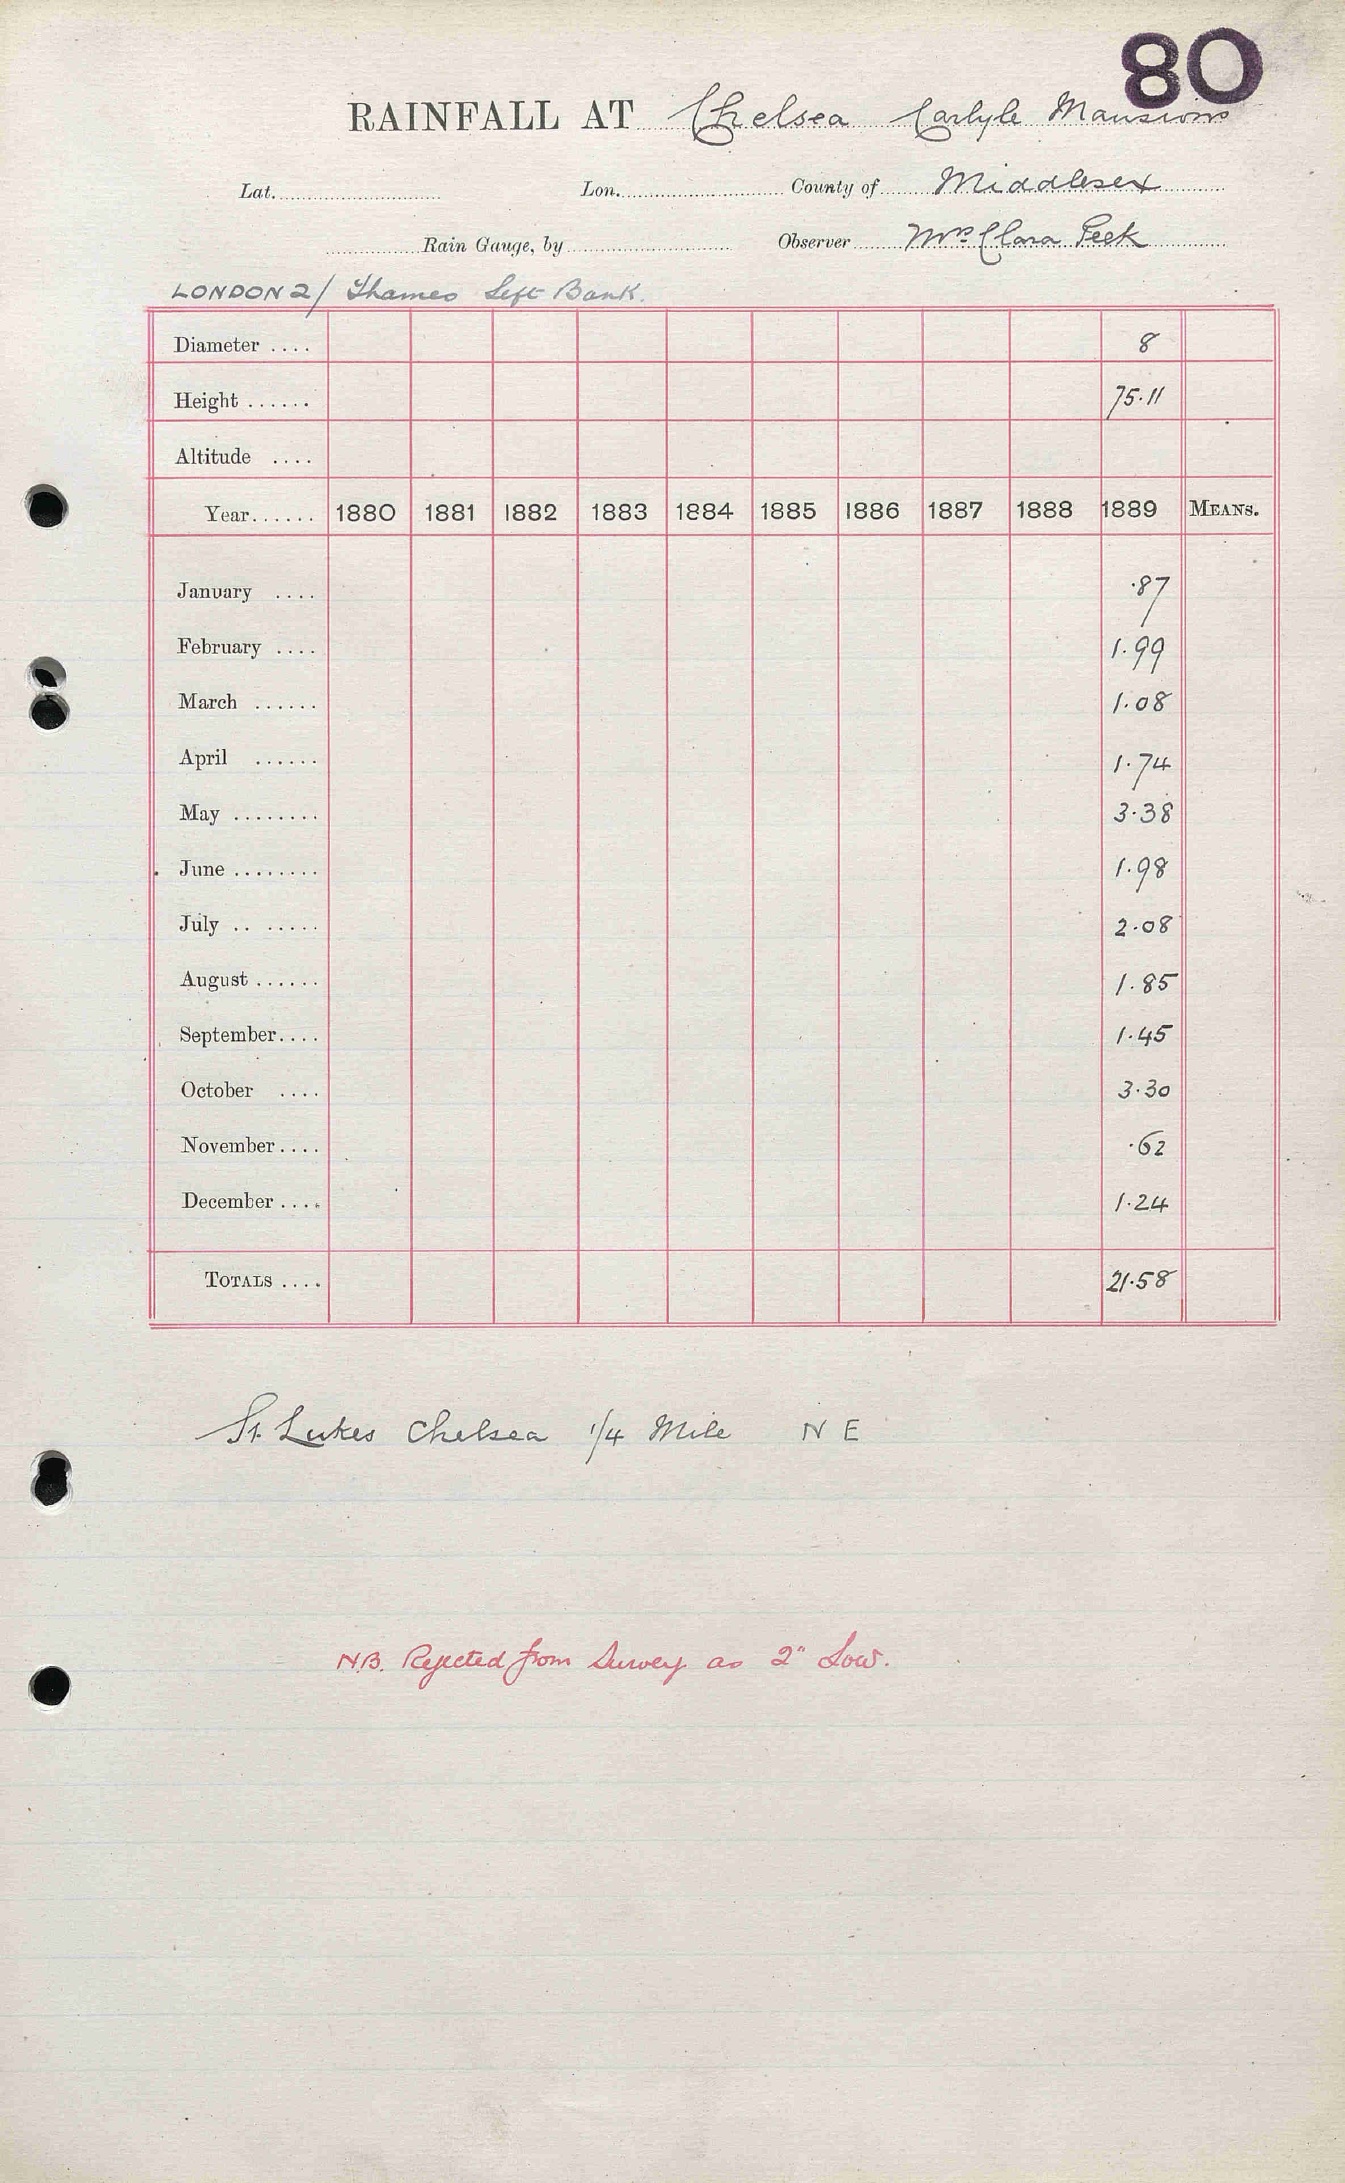 80
RAINFALL AT Chelsea Carlyle Mansions
Lat. Lon. County of Middlesex
Rain Gauge, by Observer Mrs Clara Peek
LONDON 2/ Thames Left Bank.
Diameter .... 8
Height ...... 75.11
Altitude ....
Year...... 1880 1881 1882 1883 1884 1885 1886 1887 1888 1889 MEANS.
January .... .87
February .... 1.99
March ...... 1.08
April ...... 1.74
May ........ 3.38
June ........ 1.98
July .. ..... 2.08
August ...... 1.85
September.... 1.45
October .... 3.30
November.... .62
December .... 1.24
TOTALS .... 21.58
St. Lukes Chelsea 1/4 Mile N E
N.B. Rejected from Survey as 2" Low.